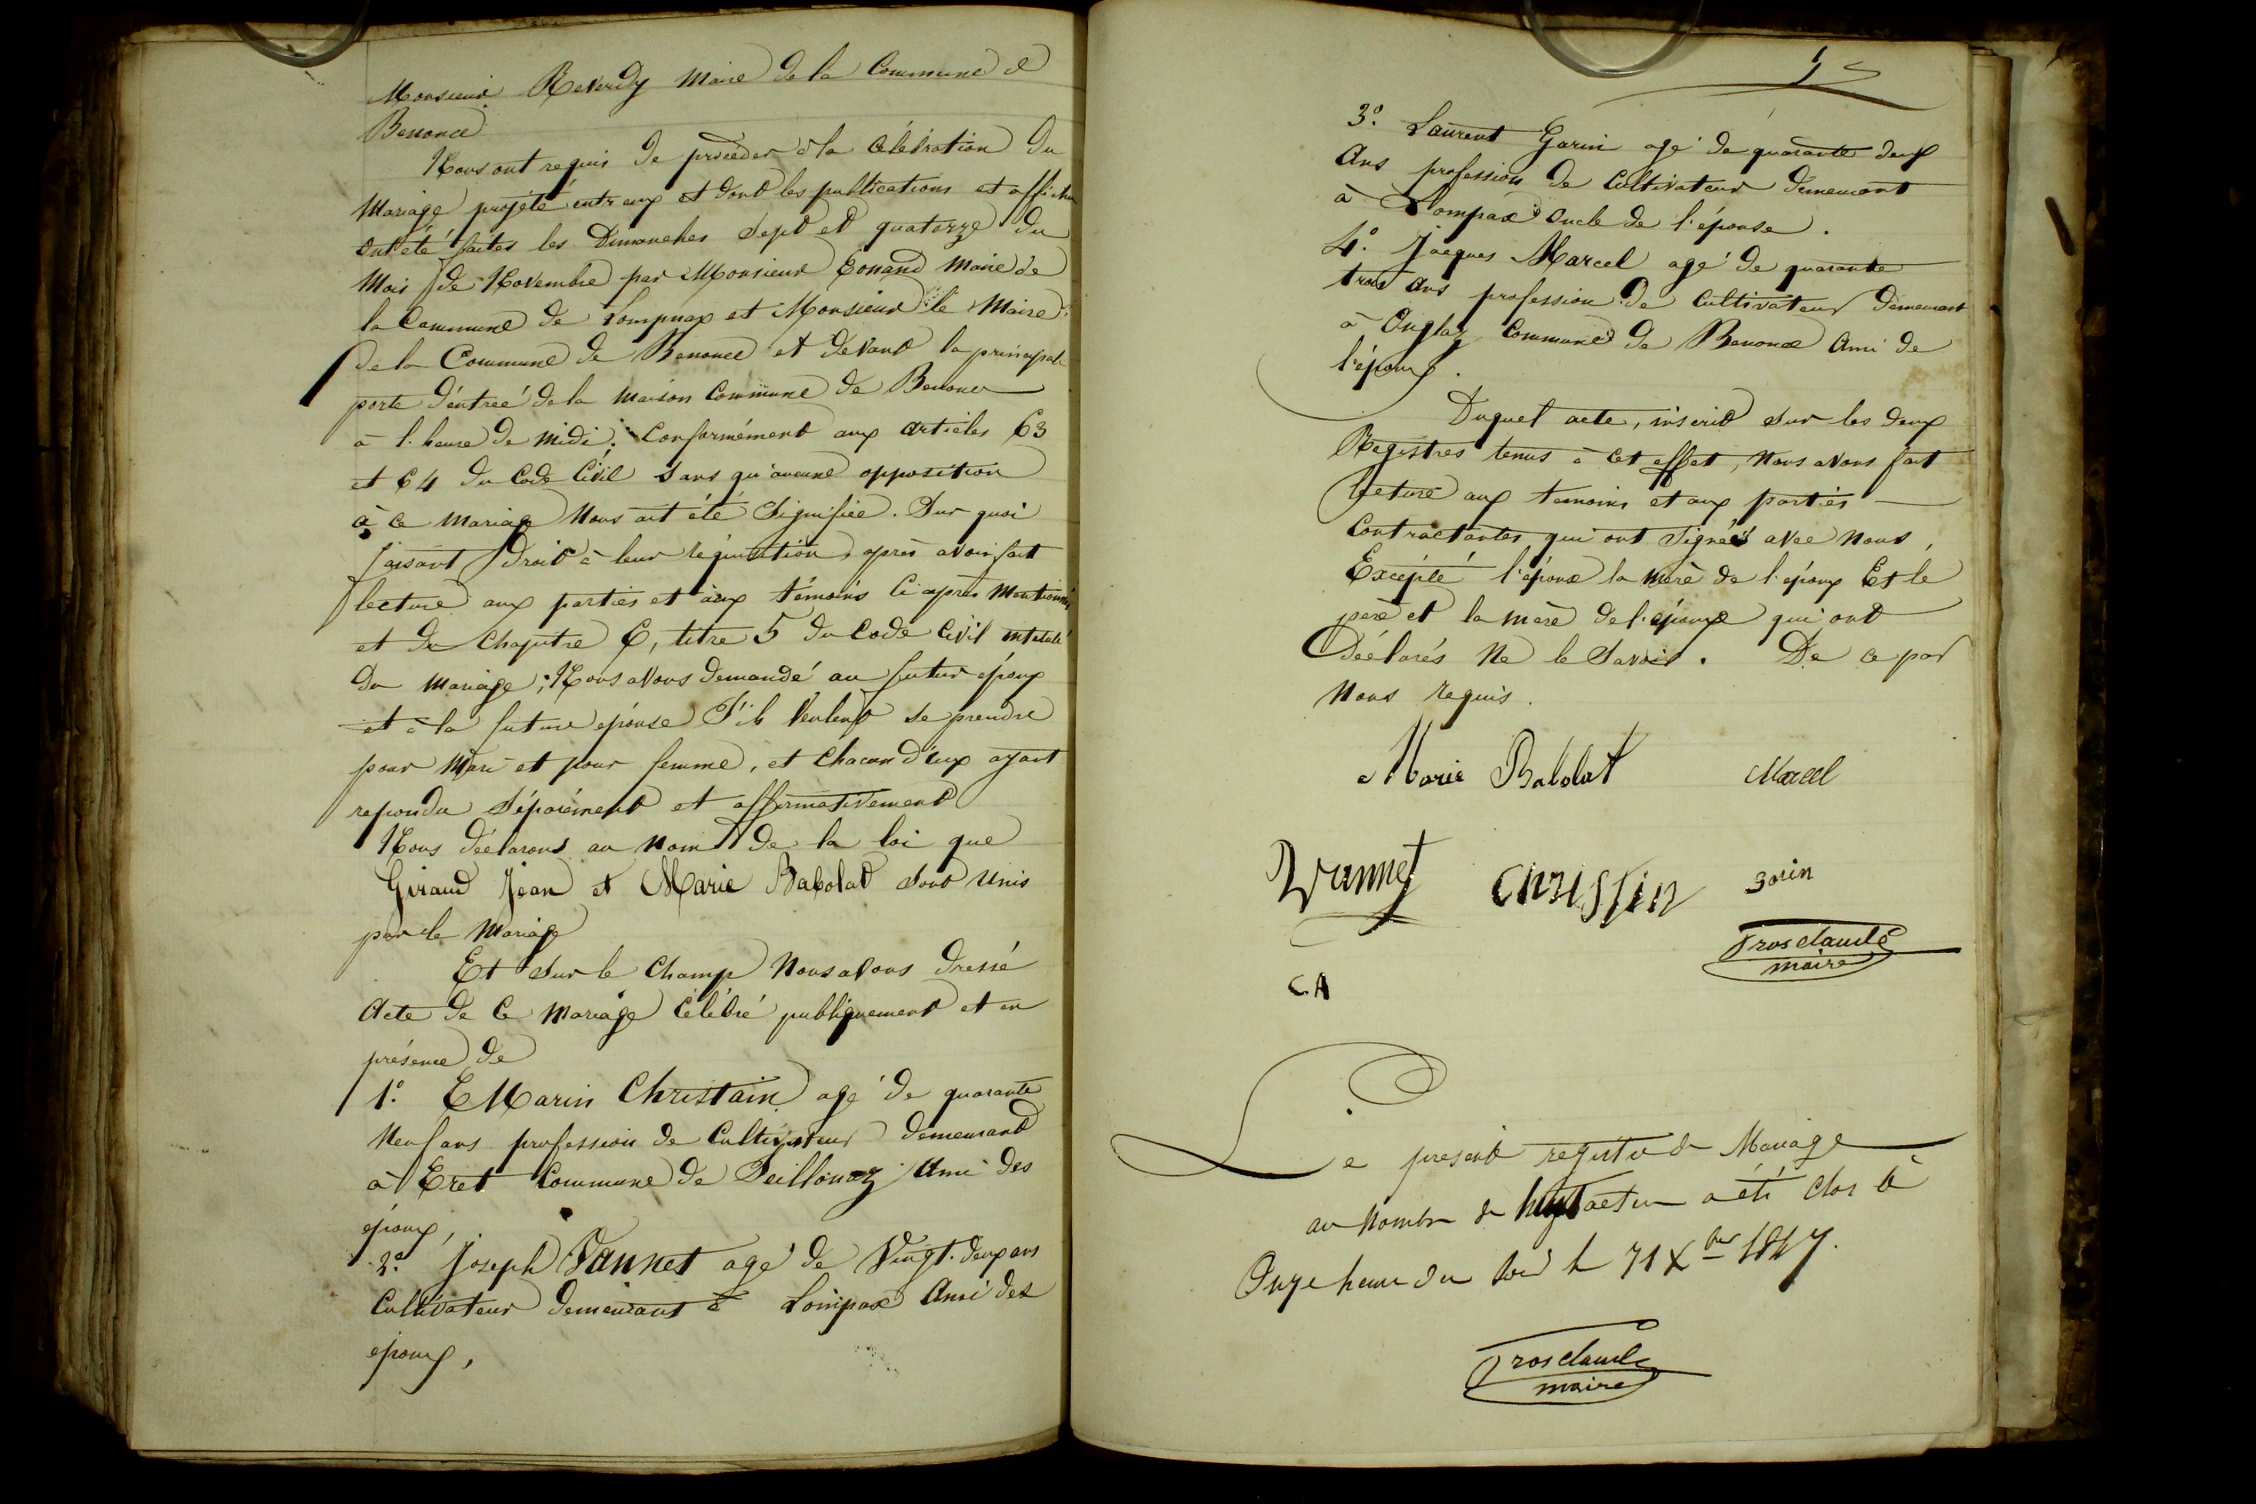 Monsieur Reverdy Maire de la Commune de
Benonce
Nous ont requis de procéder à la Célébration du
Mariage projeté entr'eux et dont les publications et affiches
ont été faites les Dimanches Sept et quatorze du
Mois de Novembre par Monsieur Maire de
la Commune de Lompnax et Monsieur le Maire
de la Commune de Benonce et devant la principale
porte d'entreé de la Maison Commune de Benonce
à l'heure de midi, Conformément aux articles 63
et 64 du Code Civil Sans qu'aucune opposition
à ce mariage Nous ait été Signifiée. Sur quoi
faisant droit à leur réquisition, après avoir fait
lecture aux parties et aux témoins Ci après Mentionnés
et du Chapitre 6, titre 5 du Code Civil intitulé
du Mariage; Nous avons demandé au futur époux
et à la future épouse S'ils Veulent se prendre
pour Mari et pour femme, et chacun d'eux ayant
repondu Séparément et affirmativement
Nous déclarons au Nom de la loi que
Giraud Jean et Marie Babolat Sont Unis
par le Mariage
Et Sur le Champ Nous avons dressé
Acte de Ce Mariage Célébré publiquement et en
présence de
1.º Marin Christain agé de quarante
Neuf ans profession de Cultivateur demeurant
à Eret Commune de Seillonaz Ami des
époux,
2.º Joseph Vannet agé de Vingt-deux ans
Cultivateur demeurant à Lompax Ami des
époux,
3.º Laurent Garin agé de quarante deux
Ans profession de Cultivateur demeurant
à Lompax oncle de l'épouse.
4.º Jacques Marcel agé de quarante
trois ans profession de Cultivateur demeurant
à Onglaz Commune de Benonce Ami de
l'époux.
Duquel acte, inscrit Sur les deux
Registres tenus à Cet effet, Nous avons fait
lecture aux temoins et aux parties
Contractantes qui ont Signées avec Nous,
Excepté l'époux la mère de l'époux Et le
père et la mère de l'épouse qui ont
Déclarés Ne le Savoir. De ce par
Nous requis.
Marie Babolat Marcel
Vannet Christin garin
Prosclaude
maire
C.A
Le present registre de Mariage
au Nombre de actes a été clos à
Onze heure du soir le 31 Xbre 1847.
Prosclaude
maire